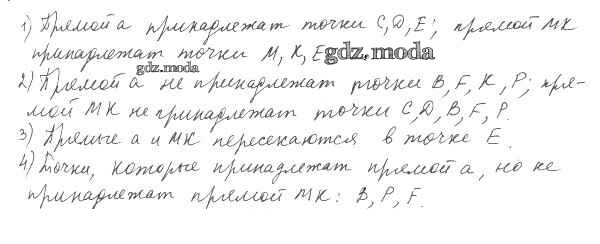 1) Прямой а принадлежат точки C, D, E; прямой МК
принадлежат точки М, К, Е gdz.moda
gdz.moda
2) Прямой а не принадлежат точки B, F, K, P; пря-
мой МК не принадлежат точки C, D, B, F, P.
3) Прямые а и МК пересекаются в точке Е.
4) Точки, которые принадлежат прямой а, но не
принадлежат прямой МК: B, P, F.